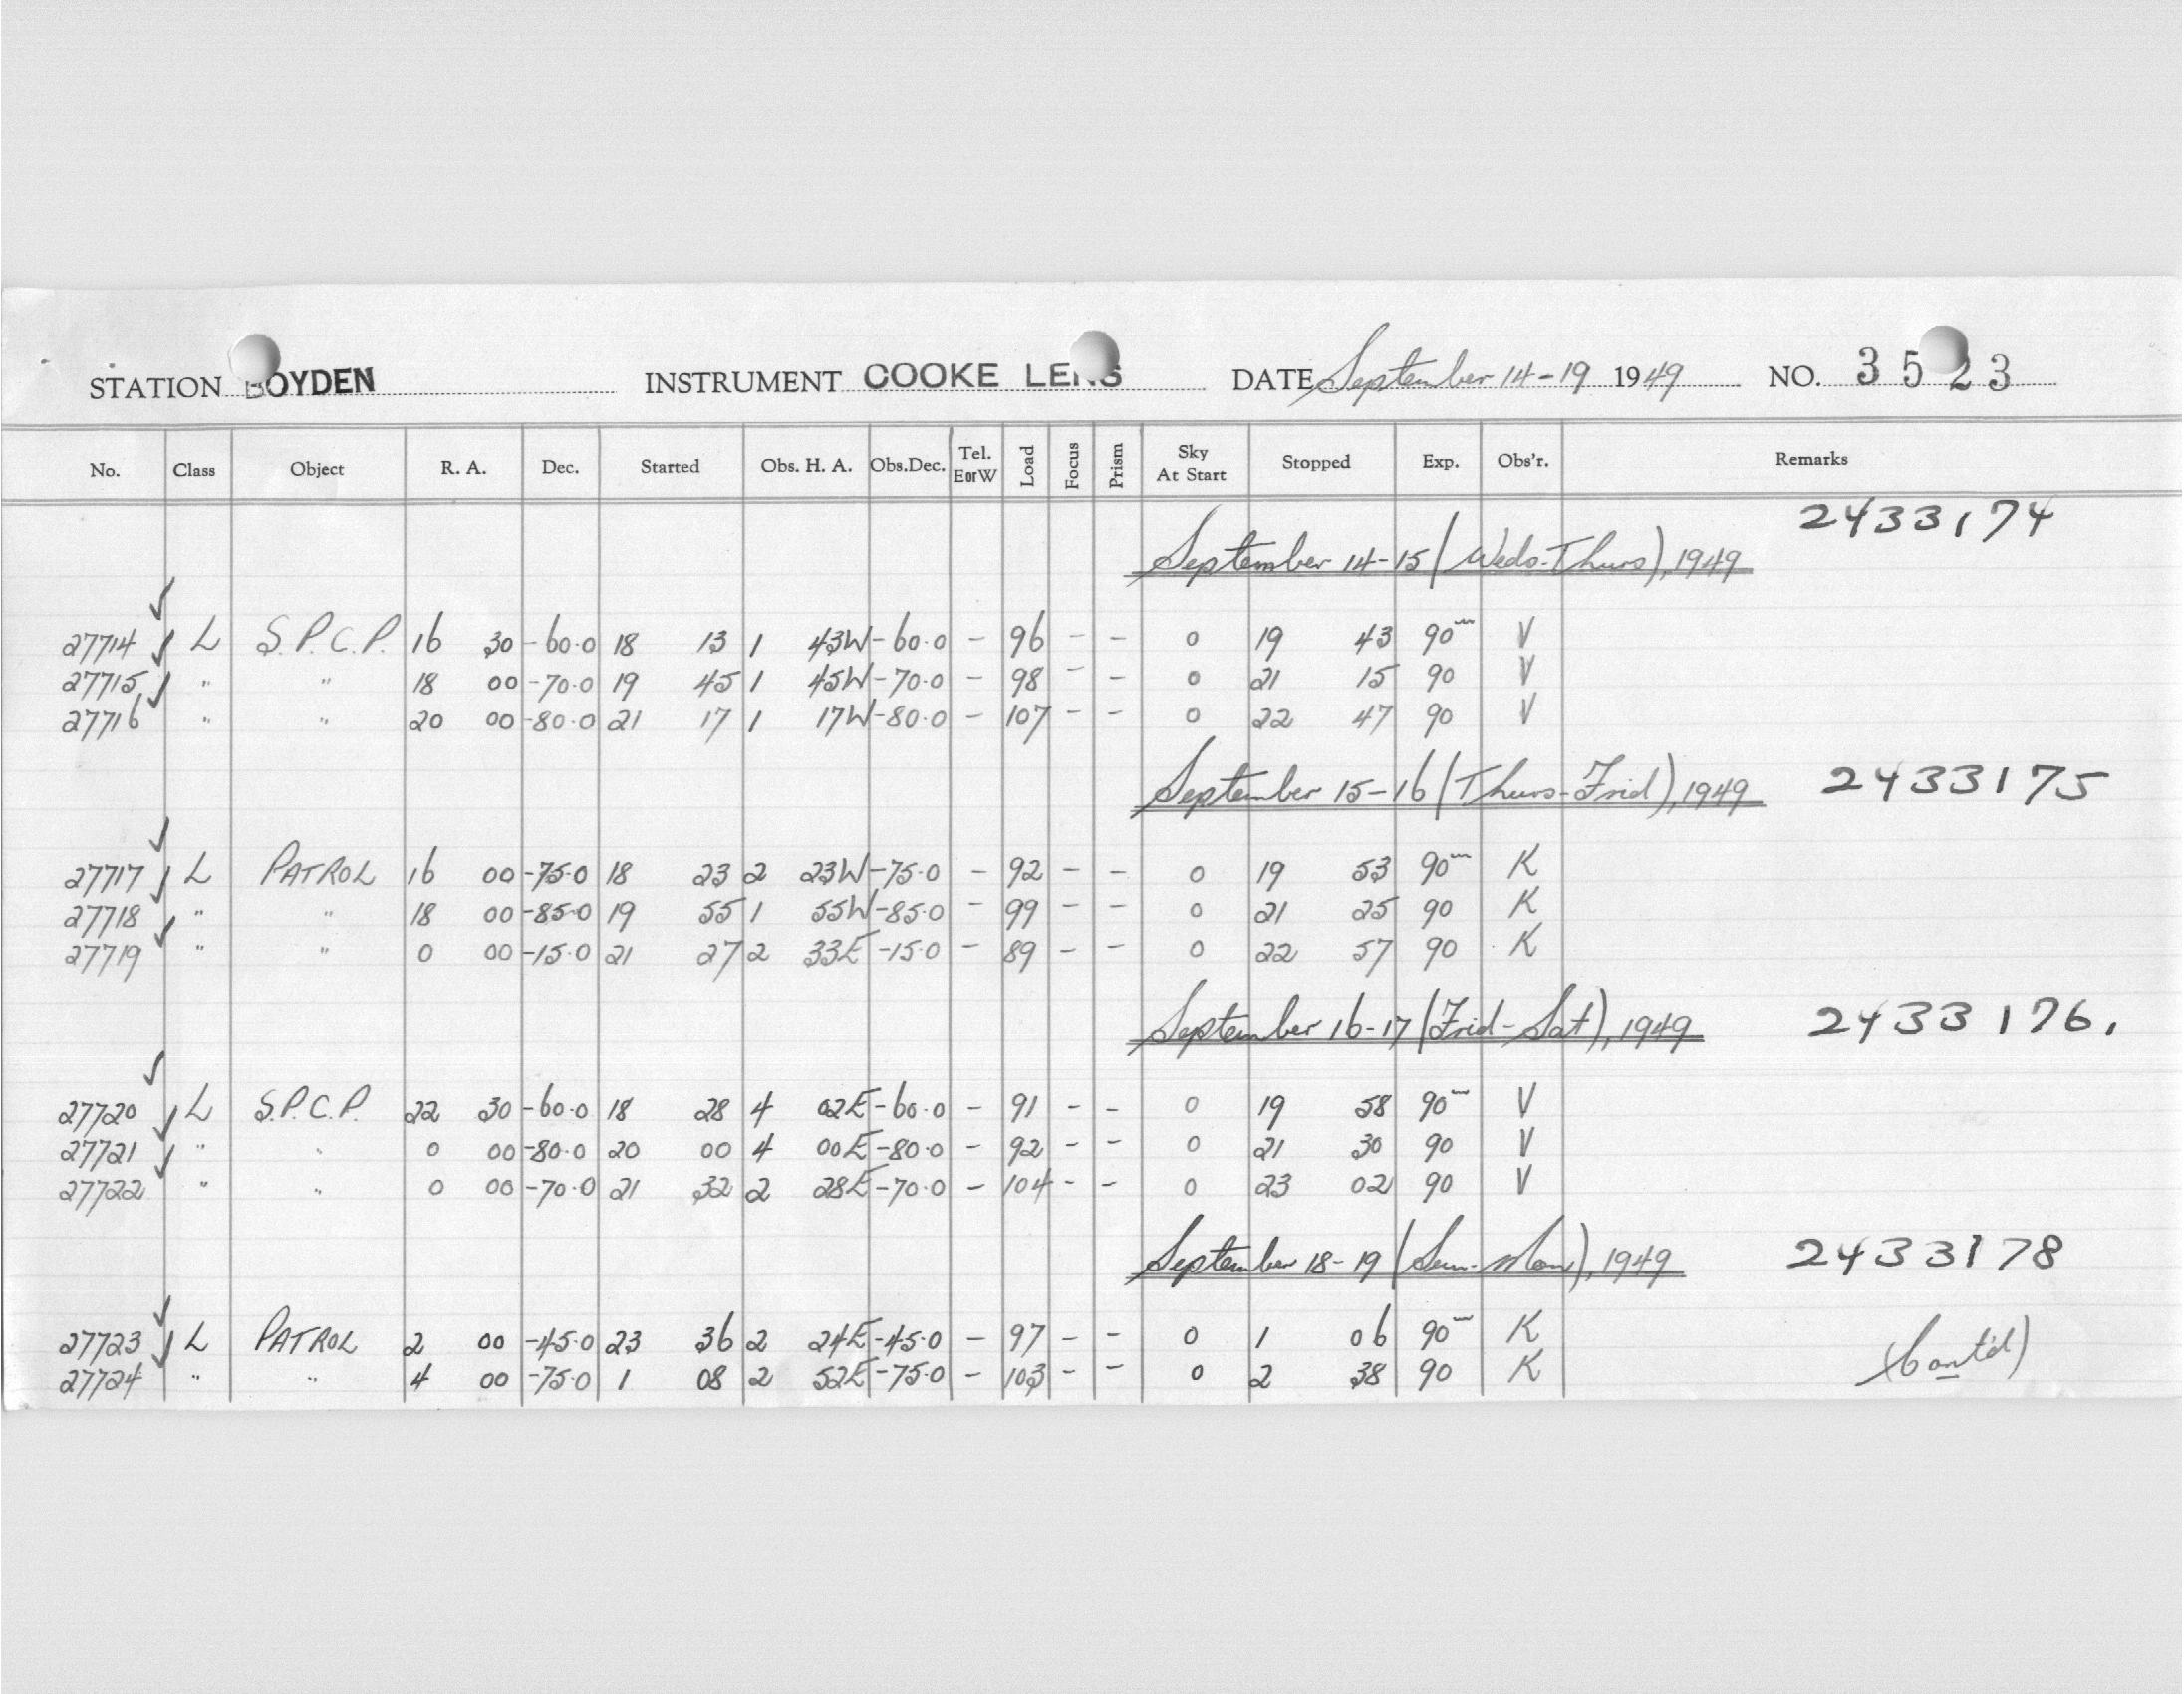 STATION BOYDEN INSTRUMENT COOKE LENS DATE September 14-19 1949 NO. 3523
No. Class Object R. A. Dec. Started Obs. H. A. Obs.Dec. Tel. EorW Load Focus Prism Sky At Start Stopped Exp. Obs'r. Remarks
2433174
September 14-15 (Weds-Thurs), 1949
27714 L S.P.C.P. 16 30 -60.0 18 13 1 43W -60.0 - 96 - - 0 19 43 90m V
27715 " " 18 00 -70.0 19 45 1 45W -70.0 - 98 - - 0 21 15 90 V
27716 " " 20 00 -80.0 21 17 1 17W -80.0 - 107 - - 0 22 47 90 V
September 15-16 (Thurs-Frid), 1949 2433175
27717 L PATROL 16 00 -75.0 18 23 2 23W -75.0 - 92 - - 0 19 53 90m K
27718 " " 18 00 -85.0 19 55 1 55W -85.0 - 99 - - 0 21 25 90 K
27719 " " 0 00 -15.0 21 27 2 33E -15.0 - 89 - - 0 22 57 90 K
September 16-17 (Frid-Sat), 1949 2433176.
27720 L S.P.C.P. 22 30 -60.0 18 28 4 02E -60.0 - 91 - - 0 19 58 90m V
27721 " " 0 00 -80.0 20 00 4 00E -80.0 - 92 - - 0 21 30 90 V
27722 " " 0 00 -70.0 21 32 2 28E -70.0 - 104 - - 0 23 02 90 V
September 18-19 (Sun-Mon), 1949 2433178
27723 L PATROL 2 00 -45.0 23 36 2 24E -45.0 - 97 - - 0 1 06 90m K
27724 " " 4 00 -75.0 1 08 2 52E -75.0 - 103 - - 0 2 38 90 K
(Cont'd)